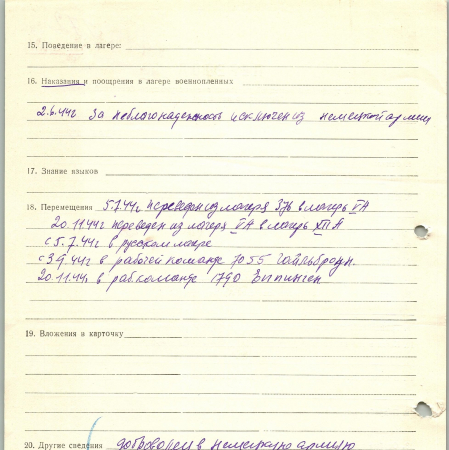 15. Поведение в лагере:
16. Наказания и поощрения в лагере военнопленных
2.6.44г за неблагонадежность исключен из немецкой армии
17. Знание языков
18. Перемещения 5.7.44г. переведен из лагеря 376 в лагерь VA
20.11.44г переведен из лагеря VA в лагерь XII A
с 5.7.44г в русском лагере
с 3.9.44г в рабочей команде 7055 Гайльброун.
20.11.44г в раб.команде 1790 Эппинген
19. Вложения в карточку
20. Другие сведения доброволец в немецкую армию